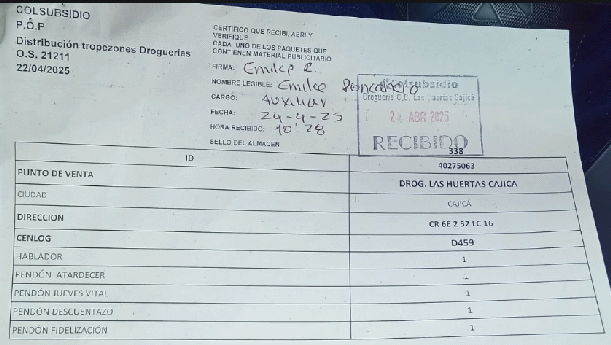 COLSUBSIDIO
P.O.P
Distribución tropezones Droguerias
O.S. 21211
22/04/2025
CERTIFICO QUE RECIBI, ABRI Y
VERIFIQUE
CADA UNO DE LOS PAQUETES QUE
CONTIENEN MATERIAL PUBLICITARIO
FIRMA: Emilce R.
NOMBRE LEGIBLE: Emilce
CARGO: Auxiliar
FECHA: 24-4-25
HORA RECIBIDO: 10:28
SELLO DEL ALMACEN
Colsubsidio
Drogueria C.C. Las Huertas Cajicá
24 ABR 2025
RECIBIDO
338
ID 40275063
PUNTO DE VENTA DROG. LAS HUERTAS CAJICA
CIUDAD CAJICÁ
DIRECCION CR 6E 2 52 LC 16
CENLOG D459
HABLADOR 1
PENDÓN ATARDECER
PENDÓN JUEVES VITAL 1
PENDÓN DESCUENTAZO 1
PENDÓN FIDELIZACIÓN 1